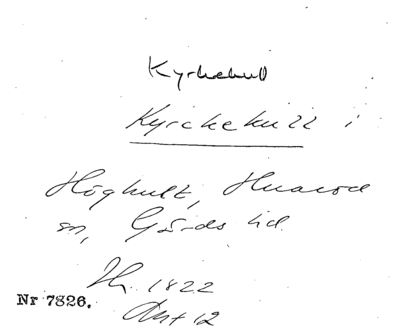 Kyrkekull
Kyrckekull i
Höghult, Huaröd
sn, Gärds hd.
1822
Nr 7826.
Akt 12